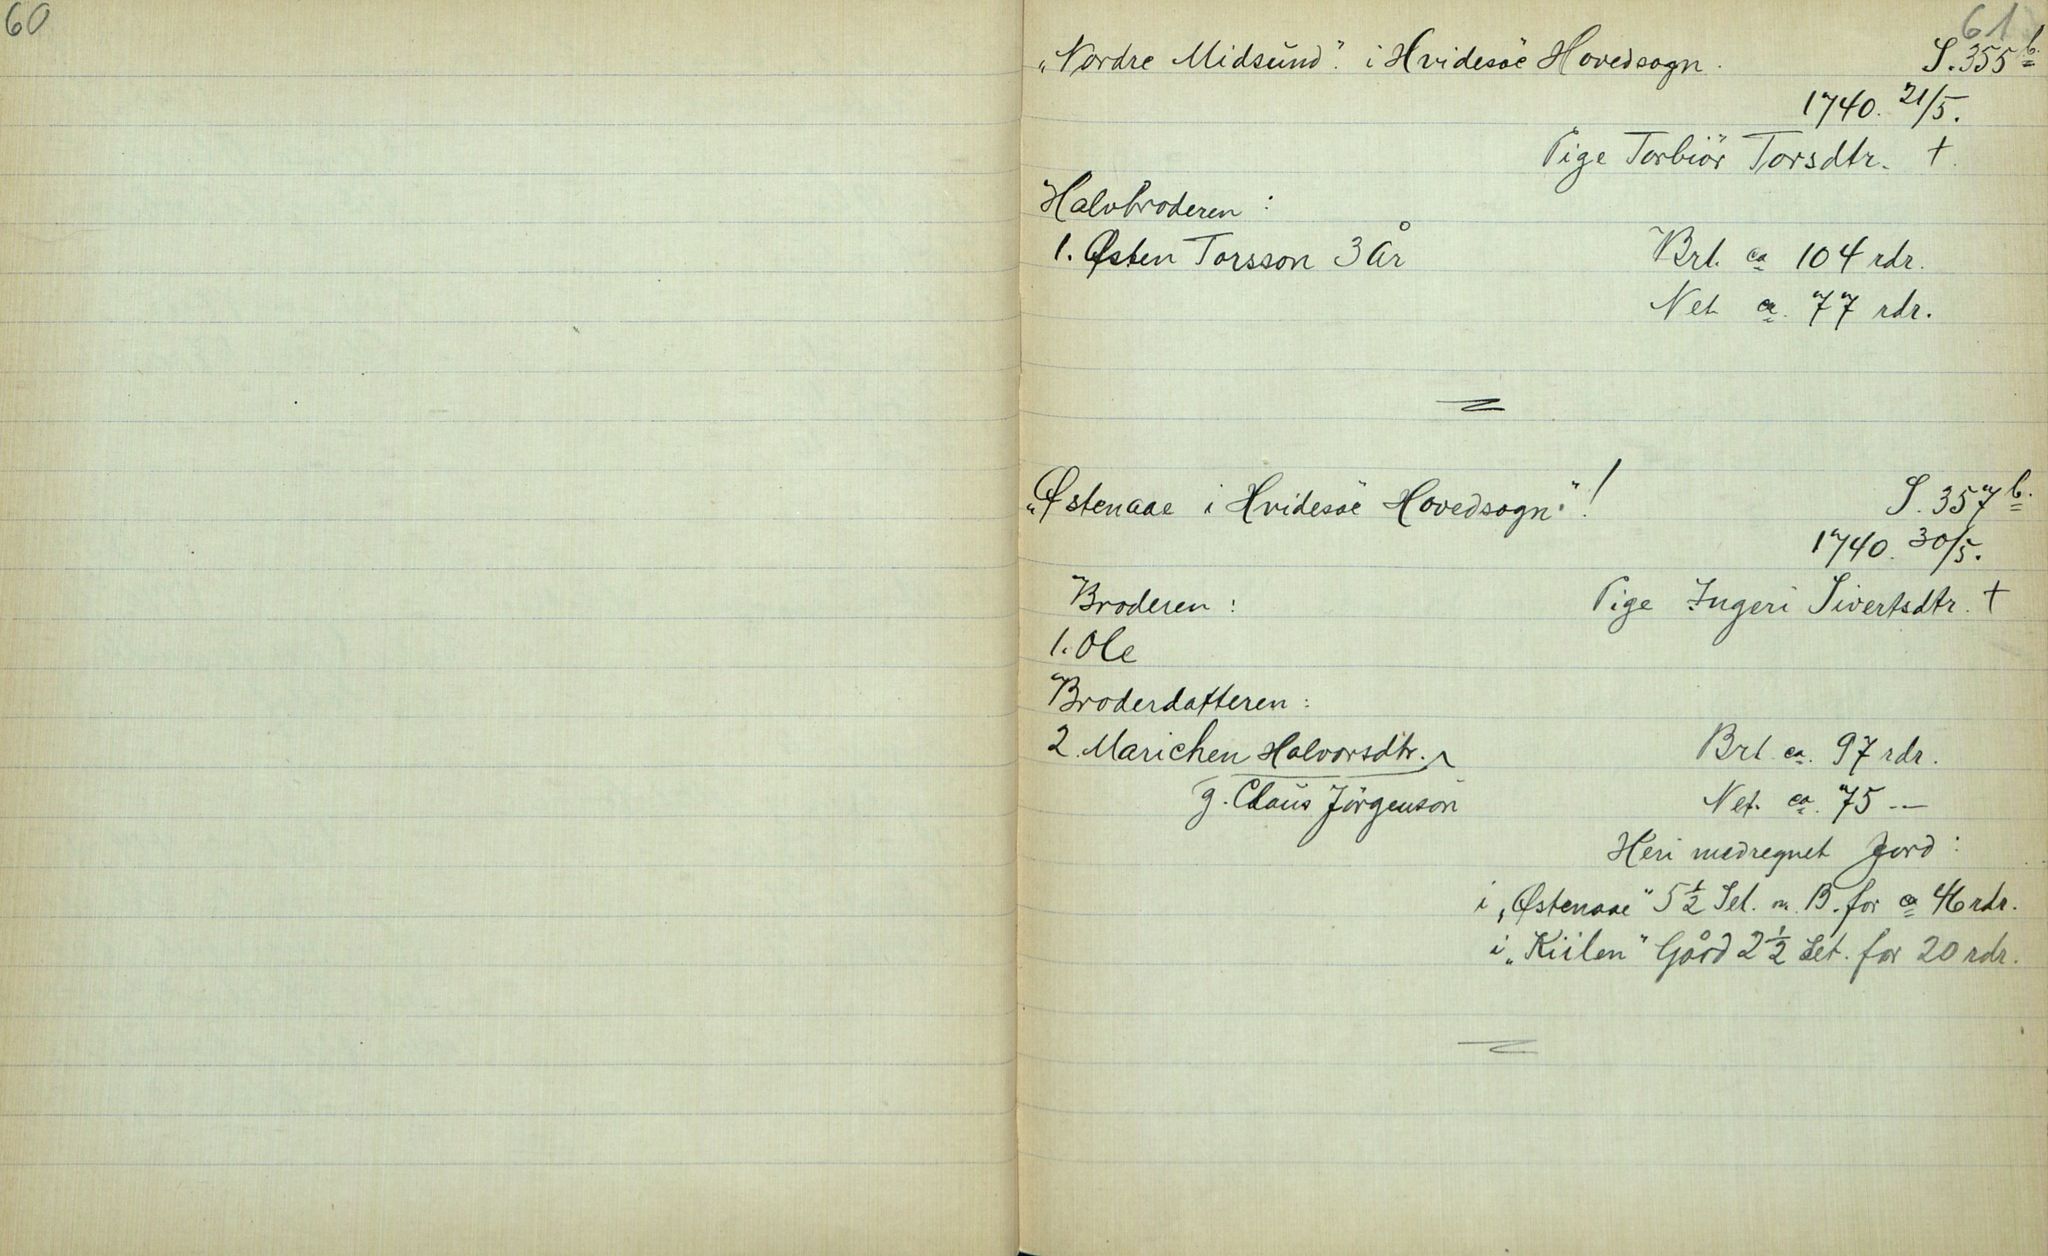 60
61
„Nordre Midsund". i Hvidesøe Hovedsogn. S. 355 b.
1740. 21/5.
Pige Torbiör Torsdtr. †.
Halvbroderen :
1. Østen Torsson 3 År Brt. ca 104 rdr.
Net. ca. 77 rdr.
„Østenaae i Hvidesøe Hovedsogn." ! S. 357 b.
1740. 30/5.
Broderen : Pige Ingeri Sivertsdtr. †
1. Ole
Broderdatteren :
2. Marichen Halvorsdtr. Brt. ca. 97 rdr.
g. Claus Jörgenson Net. ca. 75 —
Heri medregnet Jord :
i „Østenaae" 5 1/2 Set. m. B. for ca 46 rdr.
i „Kiilen" Gård 2 1/2 Set. for 20 rdr.